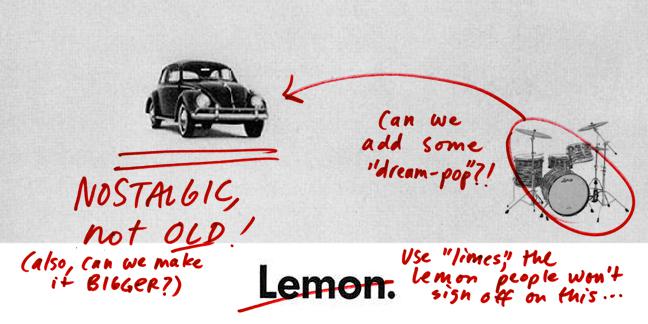 Can we
add some
"dream-pop"?!
NOSTALGIC,
not OLD!
(also, can we make
it BIGGER?)
Lemon.
Use "limes," the
lemon people won't
sign off on this...